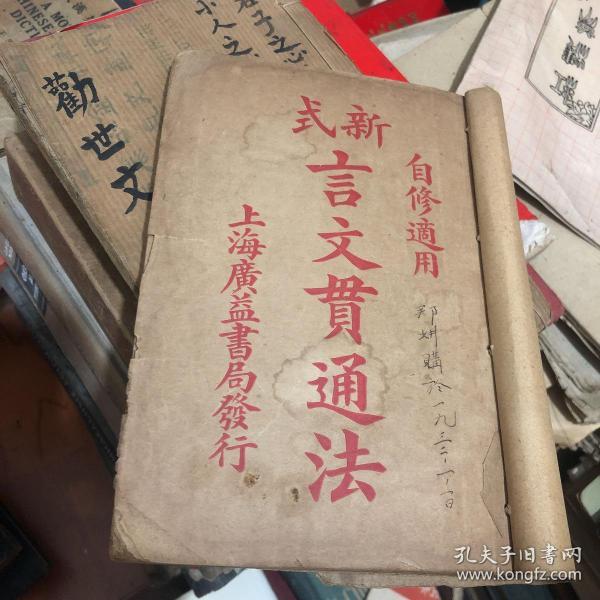 自修適用
新式
言文貫通法
上海廣益書局發行
購於一九三
勸世文
小人之
君子之心
CHINESE
A MO
DICT
孔夫子旧书网
www.kongfz.com